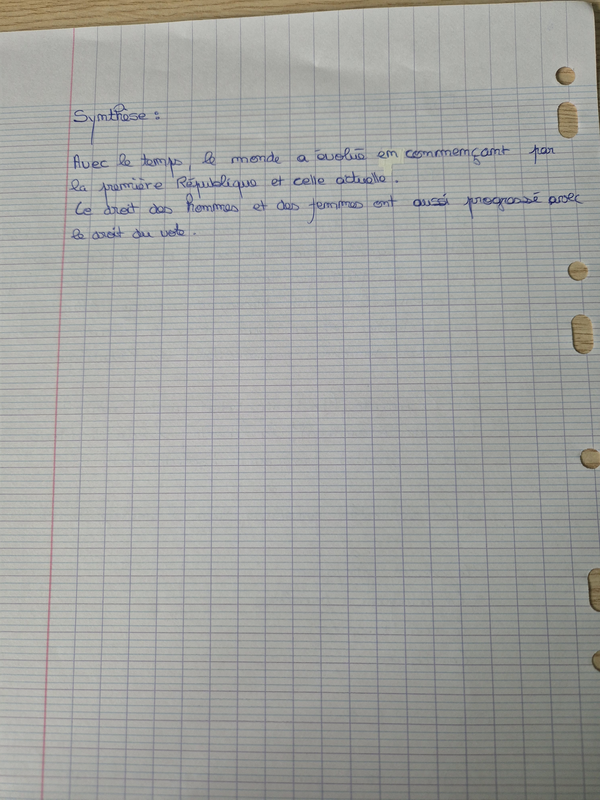 Synthèse :
Avec le temps, le monde a évolué en commençant par
la première République et celle actuelle.
Le droit des hommes et des femmes ont aussi progressé avec
le droit du vote.